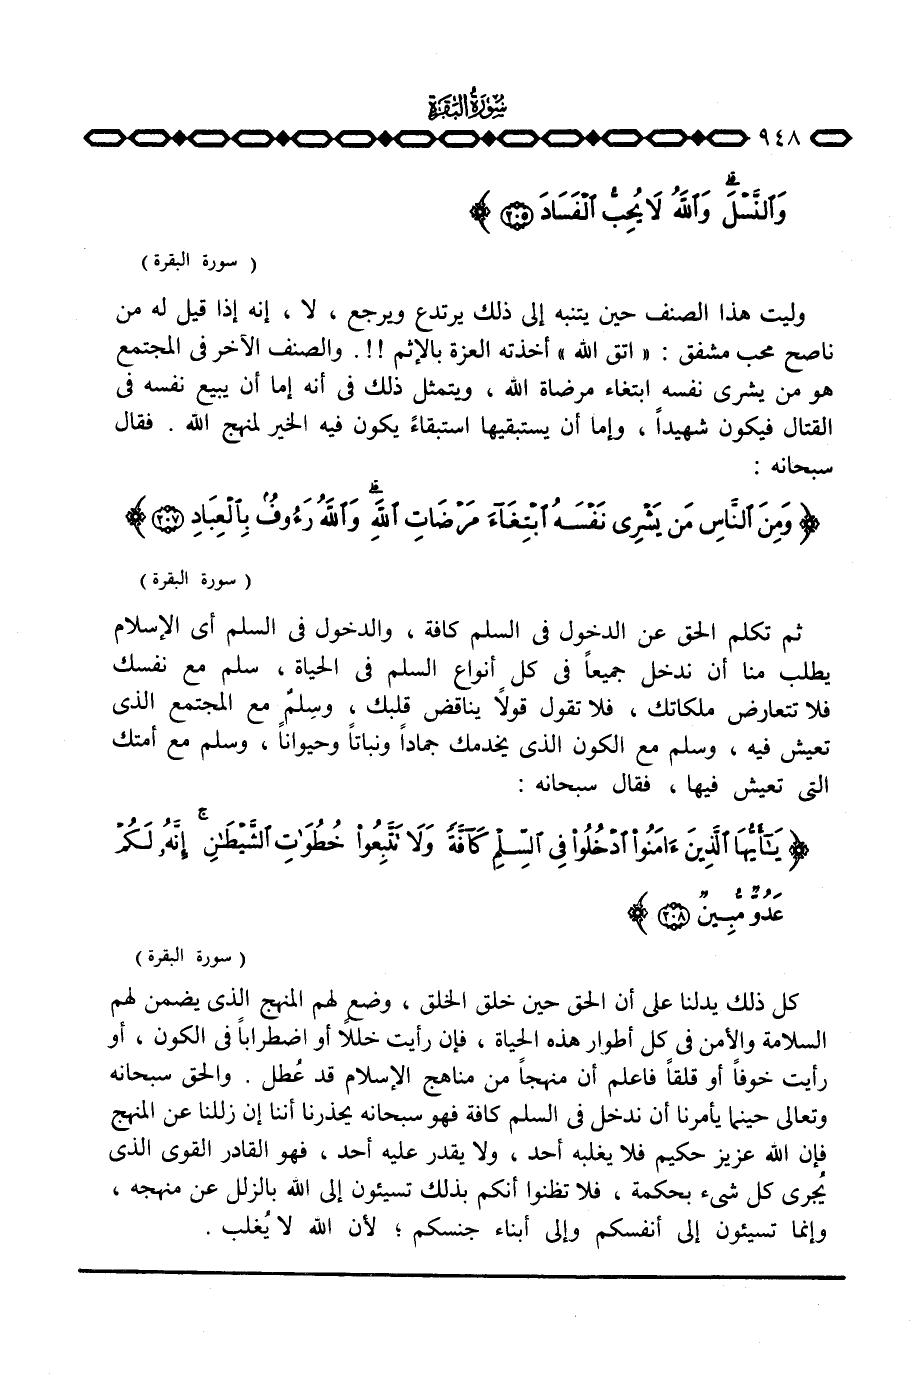 سُورَةُ الْبَقَرَة
٩٤٨
وَٱلنَّسْلَ ۗ وَٱللَّهُ لَا يُحِبُّ ٱلْفَسَادَ ﴿٢٠٥﴾ ﴾
( سورة البقرة )
وليت هذا الصنف حين يتنبه إلى ذلك يرتدع ويرجع ، لا ، إنه إذا قيل له من
ناصح محب مشفق : « اتق الله » أخذته العزة بالإثم !! . والصنف الآخر فى المجتمع
هو من يشرى نفسه ابتغاء مرضاة الله ، ويتمثل ذلك فى أنه إما أن يبيع نفسه فى
القتال فيكون شهيداً ، وإما أن يستبقيها استبقاءً يكون فيه الخير لمنهج الله . فقال
سبحانه :
﴿ وَمِنَ ٱلنَّاسِ مَن يَشْرِى نَفْسَهُ ٱبْتِغَآءَ مَرْضَاتِ ٱللَّهِ ۗ وَٱللَّهُ رَءُوفٌۢ بِٱلْعِبَادِ ﴿٢٠٧﴾ ﴾
( سورة البقرة )
ثم تكلم الحق عن الدخول فى السلم كافة ، والدخول فى السلم أى الإسلام
يطلب منا أن ندخل جميعاً فى كل أنواع السلم فى الحياة ، سلم مع نفسك
فلا تتعارض ملكاتك ، فلا تقول قولاً يناقض قلبك ، وسِلمٌ مع المجتمع الذى
تعيش فيه ، وسلم مع الكون الذى يخدمك جماداً ونباتاً وحيواناً ، وسلم مع أمتك
التى تعيش فيها ، فقال سبحانه :
﴿ يَـٰٓأَيُّهَا ٱلَّذِينَ ءَامَنُوا۟ ٱدْخُلُوا۟ فِى ٱلسِّلْمِ كَآفَّةً وَلَا تَتَّبِعُوا۟ خُطُوَٰتِ ٱلشَّيْطَـٰنِ ۚ إِنَّهُۥ لَكُمْ
عَدُوٌّ مُّبِينٌ ﴿٢٠٨﴾ ﴾
( سورة البقرة )
كل ذلك يدلنا على أن الحق حين خلق الخلق ، وضع لهم المنهج الذى يضمن لهم
السلامة والأمن فى كل أطوار هذه الحياة ، فإن رأيت خللاً أو اضطراباً فى الكون ، أو
رأيت خوفاً أو قلقاً فاعلم أن منهجاً من مناهج الإسلام قد عُطل . والحق سبحانه
وتعالى حينما يأمرنا أن ندخل فى السلم كافة فهو سبحانه يحذرنا أننا إن زللنا عن المنهج
فإن الله عزيز حكيم فلا يغلبه أحد ، ولا يقدر عليه أحد ، فهو القادر القوى الذى
يُجرى كل شىء بحكمة ، فلا تظنوا أنكم بذلك تسيئون إلى الله بالزلل عن منهجه ،
وإنما تسيئون إلى أنفسكم وإلى أبناء جنسكم ؛ لأن الله لا يُغلب .